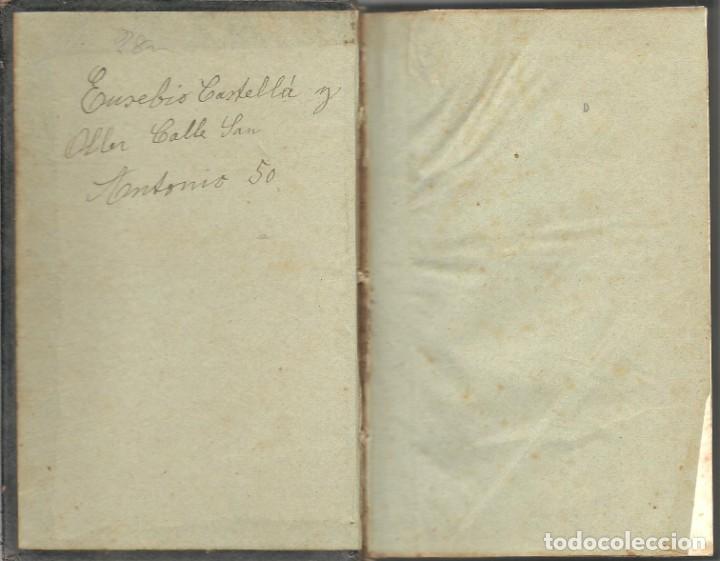 Eusebio Castellá y
Oller Calle San
Antonio 50
D
todocoleccion
todocoleccion.net